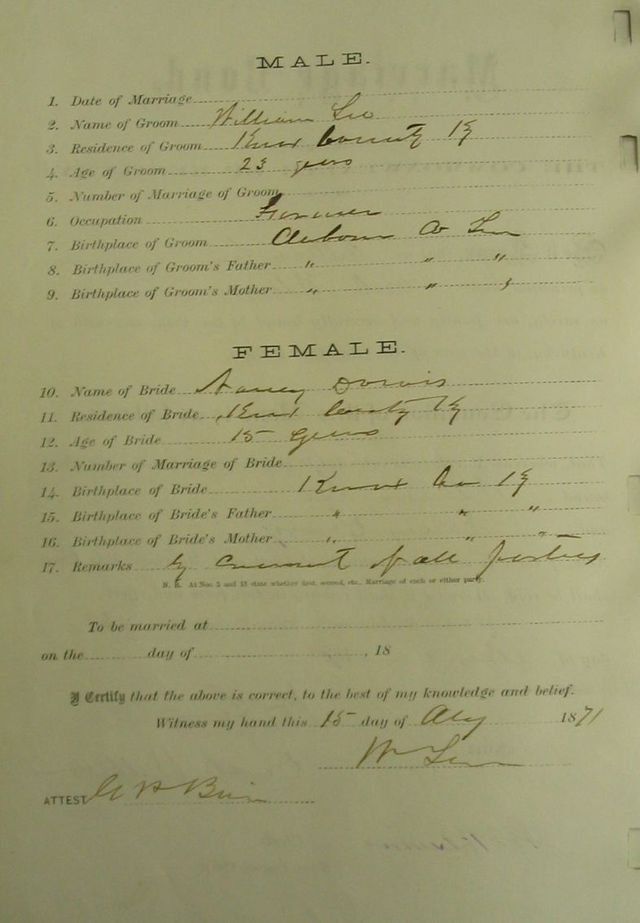 MALE.
1. Date of Marriage
2. Name of Groom William Lee
3. Residence of Groom Knox County Ky
4. Age of Groom 23 years
5. Number of Marriage of Groom
6. Occupation Farmer
7. Birthplace of Groom Co Ten
8. Birthplace of Groom's Father " " "
9. Birthplace of Groom's Mother " " "
FEMALE.
10. Name of Bride Nancy
11. Residence of Bride Knox County Ky
12. Age of Bride 15 years
13. Number of Marriage of Bride
14. Birthplace of Bride Knox Co Ky
15. Birthplace of Bride's Father " " "
16. Birthplace of Bride's Mother " " "
17. Remarks By consent of all parties
N. B. At Nos. 5 and 13 state whether first, second, etc., Marriage of each or either party.
To be married at
on the day of , 18
I Certify that the above is correct, to the best of my knowledge and belief.
Witness my hand this 15 day of 1871
Wm
ATTEST